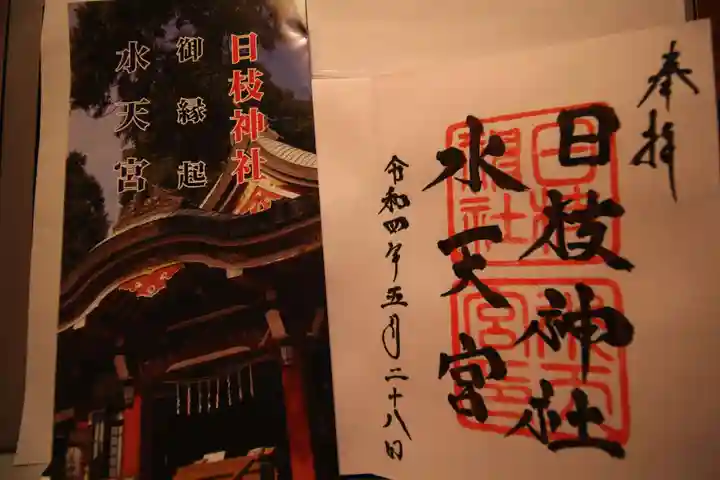 日枝神社
御縁起
水天宮
奉拝
日枝神社
水天宮
令和四年五月二十八日